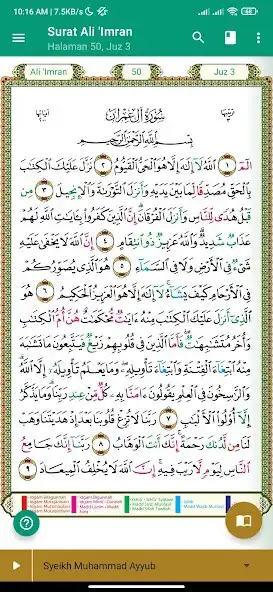 10:16 AM | 7.5KB/s
Surat Ali 'Imran
Halaman 50, Juz 3
Ali 'Imran
50
Juz 3
سُورَةُ آلِ عِمْرَانَ
بِسْمِ اللَّهِ الرَّحْمَٰنِ الرَّحِيمِ
الٓمٓ ١ اللَّهُ لَآ إِلَٰهَ إِلَّا هُوَ الْحَيُّ الْقَيُّومُ ٢ نَزَّلَ عَلَيْكَ الْكِتَٰبَ
بِالْحَقِّ مُصَدِّقًا لِّمَا بَيْنَ يَدَيْهِ وَأَنزَلَ التَّوْرَىٰةَ وَالْإِنجِيلَ ٣ مِن
قَبْلُ هُدًى لِّلنَّاسِ وَأَنزَلَ الْفُرْقَانَ إِنَّ الَّذِينَ كَفَرُوا بِـَٔايَٰتِ اللَّهِ لَهُمْ
عَذَابٌ شَدِيدٌ وَاللَّهُ عَزِيزٌ ذُو انتِقَامٍ ٤ إِنَّ اللَّهَ لَا يَخْفَىٰ عَلَيْهِ
شَىْءٌ فِى الْأَرْضِ وَلَا فِى السَّمَآءِ ٥ هُوَ الَّذِى يُصَوِّرُكُمْ
فِى الْأَرْحَامِ كَيْفَ يَشَآءُ لَآ إِلَٰهَ إِلَّا هُوَ الْعَزِيزُ الْحَكِيمُ ٦ هُوَ
الَّذِىٓ أَنزَلَ عَلَيْكَ الْكِتَٰبَ مِنْهُ ءَايَٰتٌ مُّحْكَمَٰتٌ هُنَّ أُمُّ الْكِتَٰبِ
وَأُخَرُ مُتَشَٰبِهَٰتٌ فَأَمَّا الَّذِينَ فِى قُلُوبِهِمْ زَيْغٌ فَيَتَّبِعُونَ مَا تَشَٰبَهَ
مِنْهُ ابْتِغَآءَ الْفِتْنَةِ وَابْتِغَآءَ تَأْوِيلِهِ وَمَا يَعْلَمُ تَأْوِيلَهُٓ إِلَّا اللَّهُ
وَالرَّٰسِخُونَ فِى الْعِلْمِ يَقُولُونَ ءَامَنَّا بِهِ كُلٌّ مِّنْ عِندِ رَبِّنَا وَمَا يَذَّكَّرُ
إِلَّآ أُولُوا الْأَلْبَٰبِ ٧ رَبَّنَا لَا تُزِغْ قُلُوبَنَا بَعْدَ إِذْ هَدَيْتَنَا وَهَبْ
لَنَا مِن لَّدُنكَ رَحْمَةً إِنَّكَ أَنتَ الْوَهَّابُ ٨ رَبَّنَآ إِنَّكَ جَامِعُ
النَّاسِ لِيَوْمٍ لَّا رَيْبَ فِيهِ إِنَّ اللَّهَ لَا يُخْلِفُ الْمِيعَادَ ٩
Syeikh Muhammad Ayyub